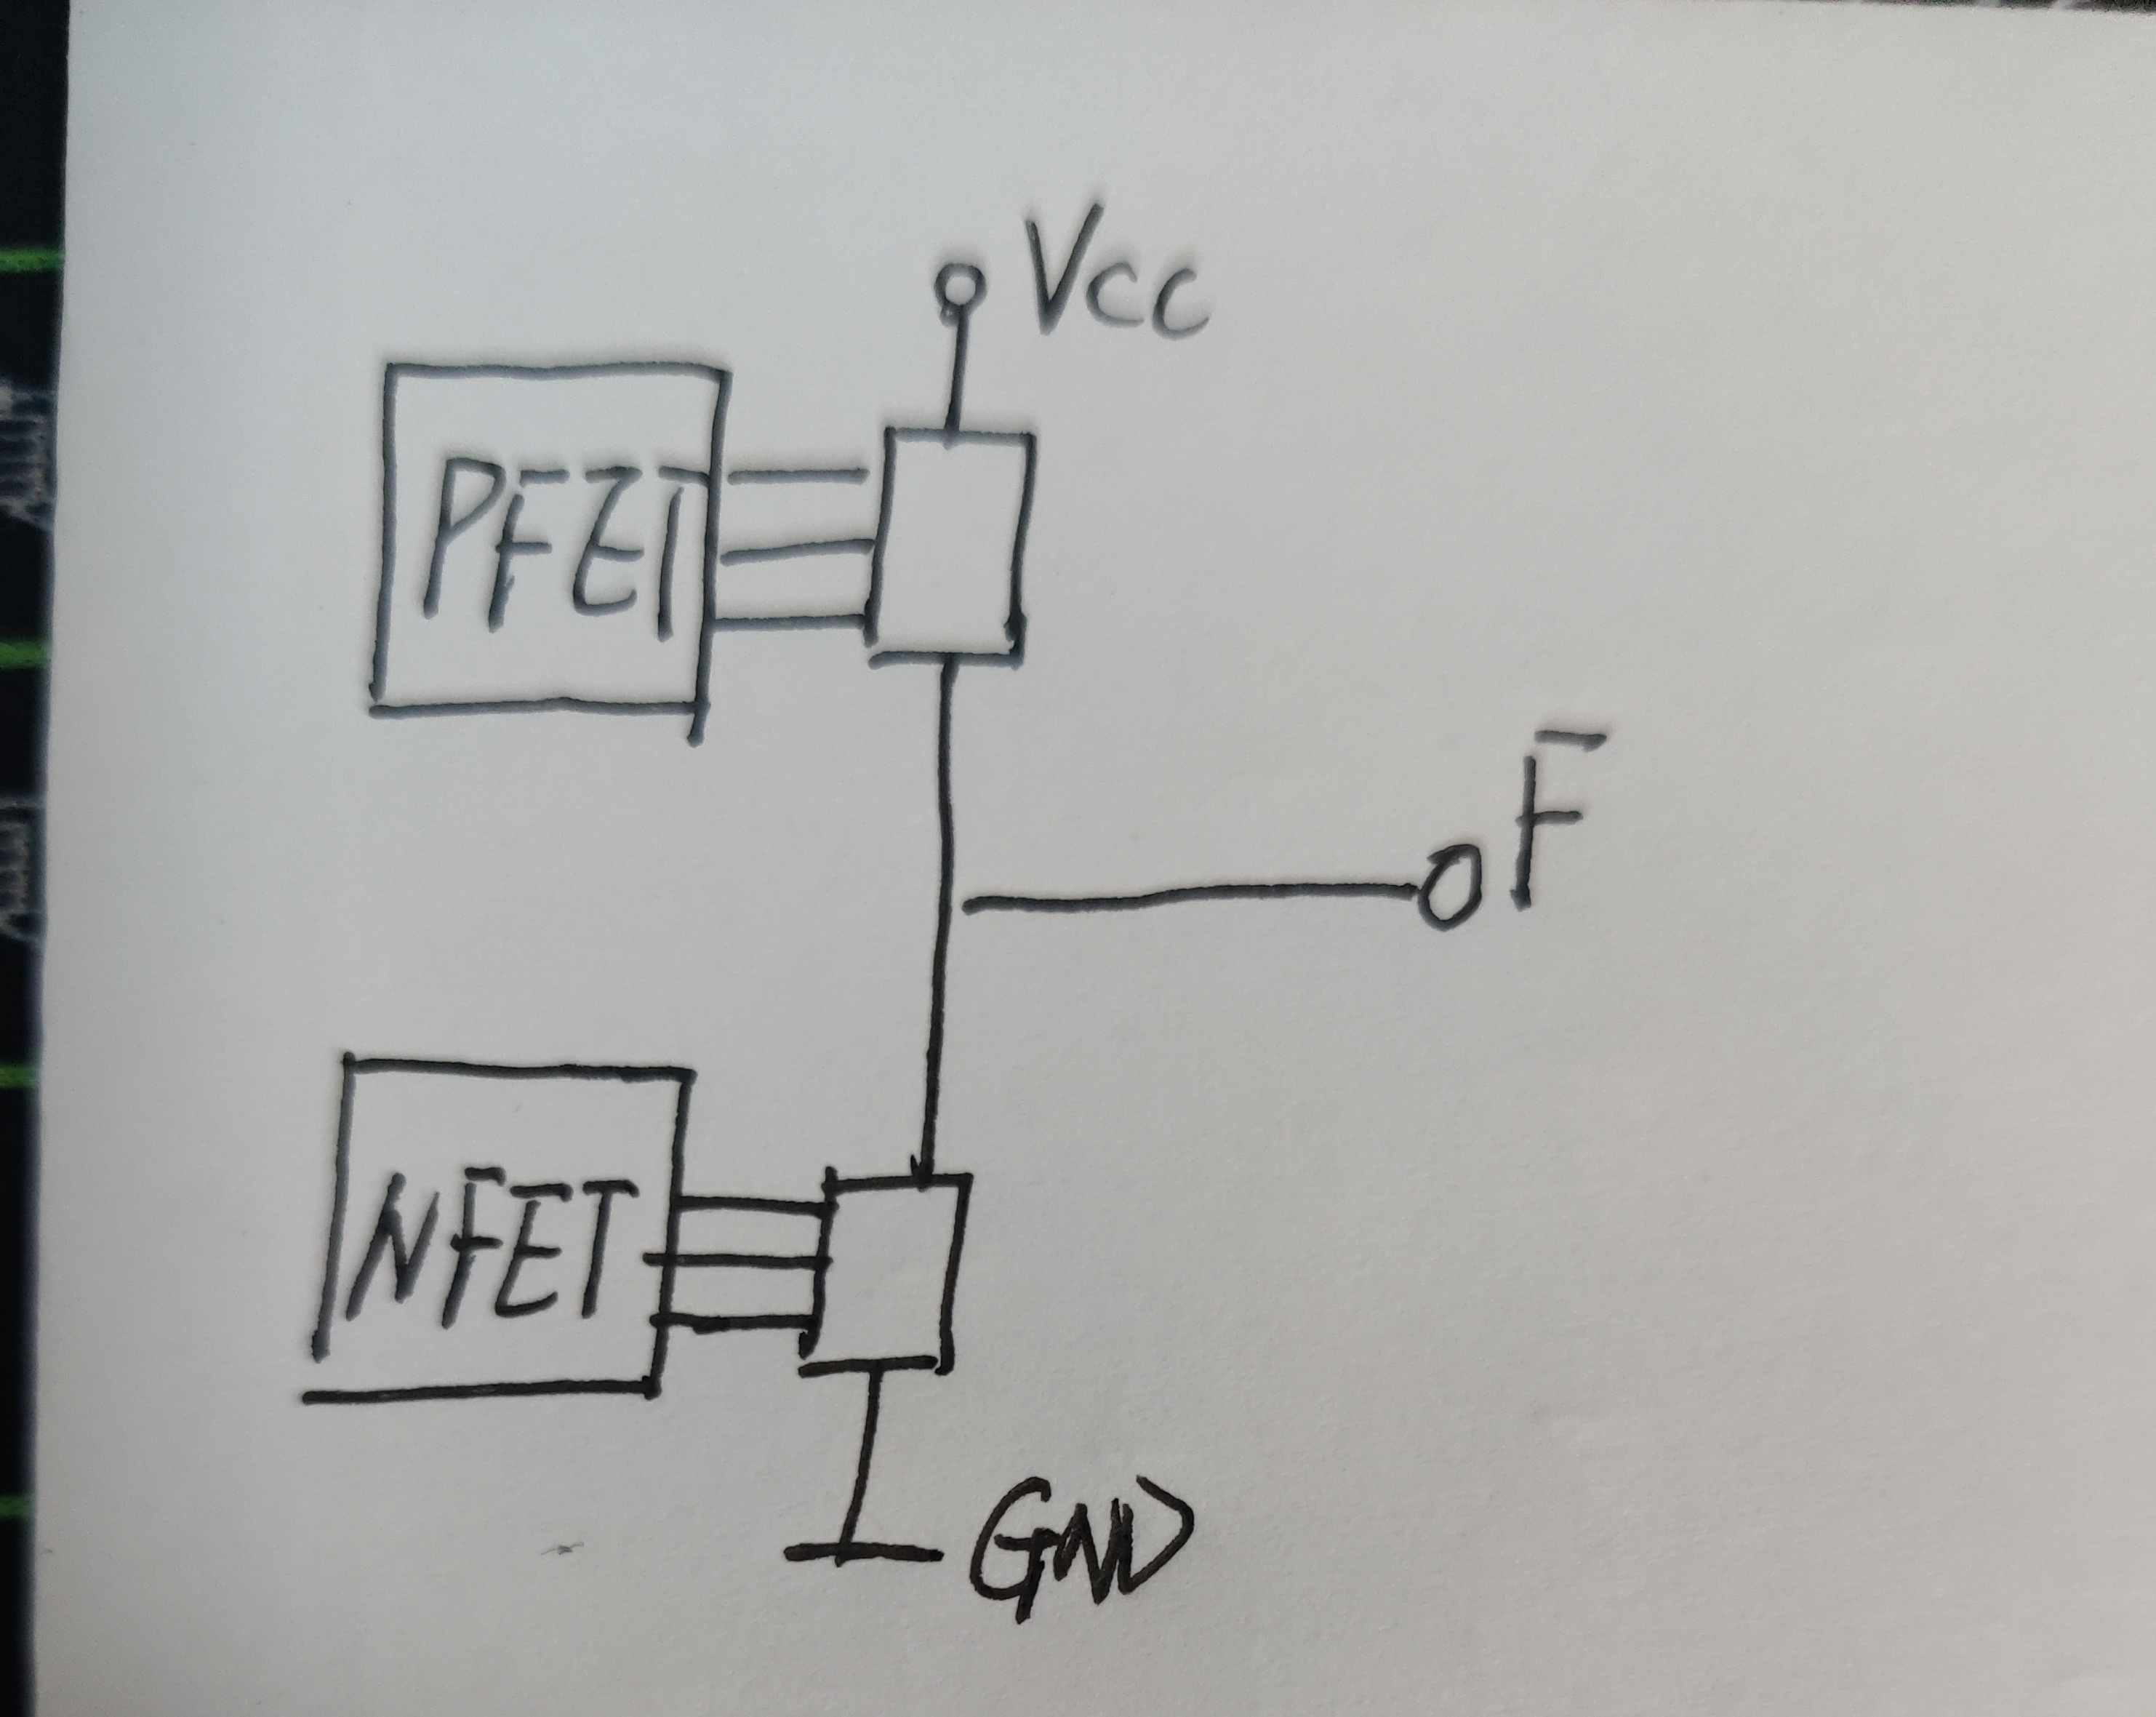 Vcc
PFET
F
NFET
GND